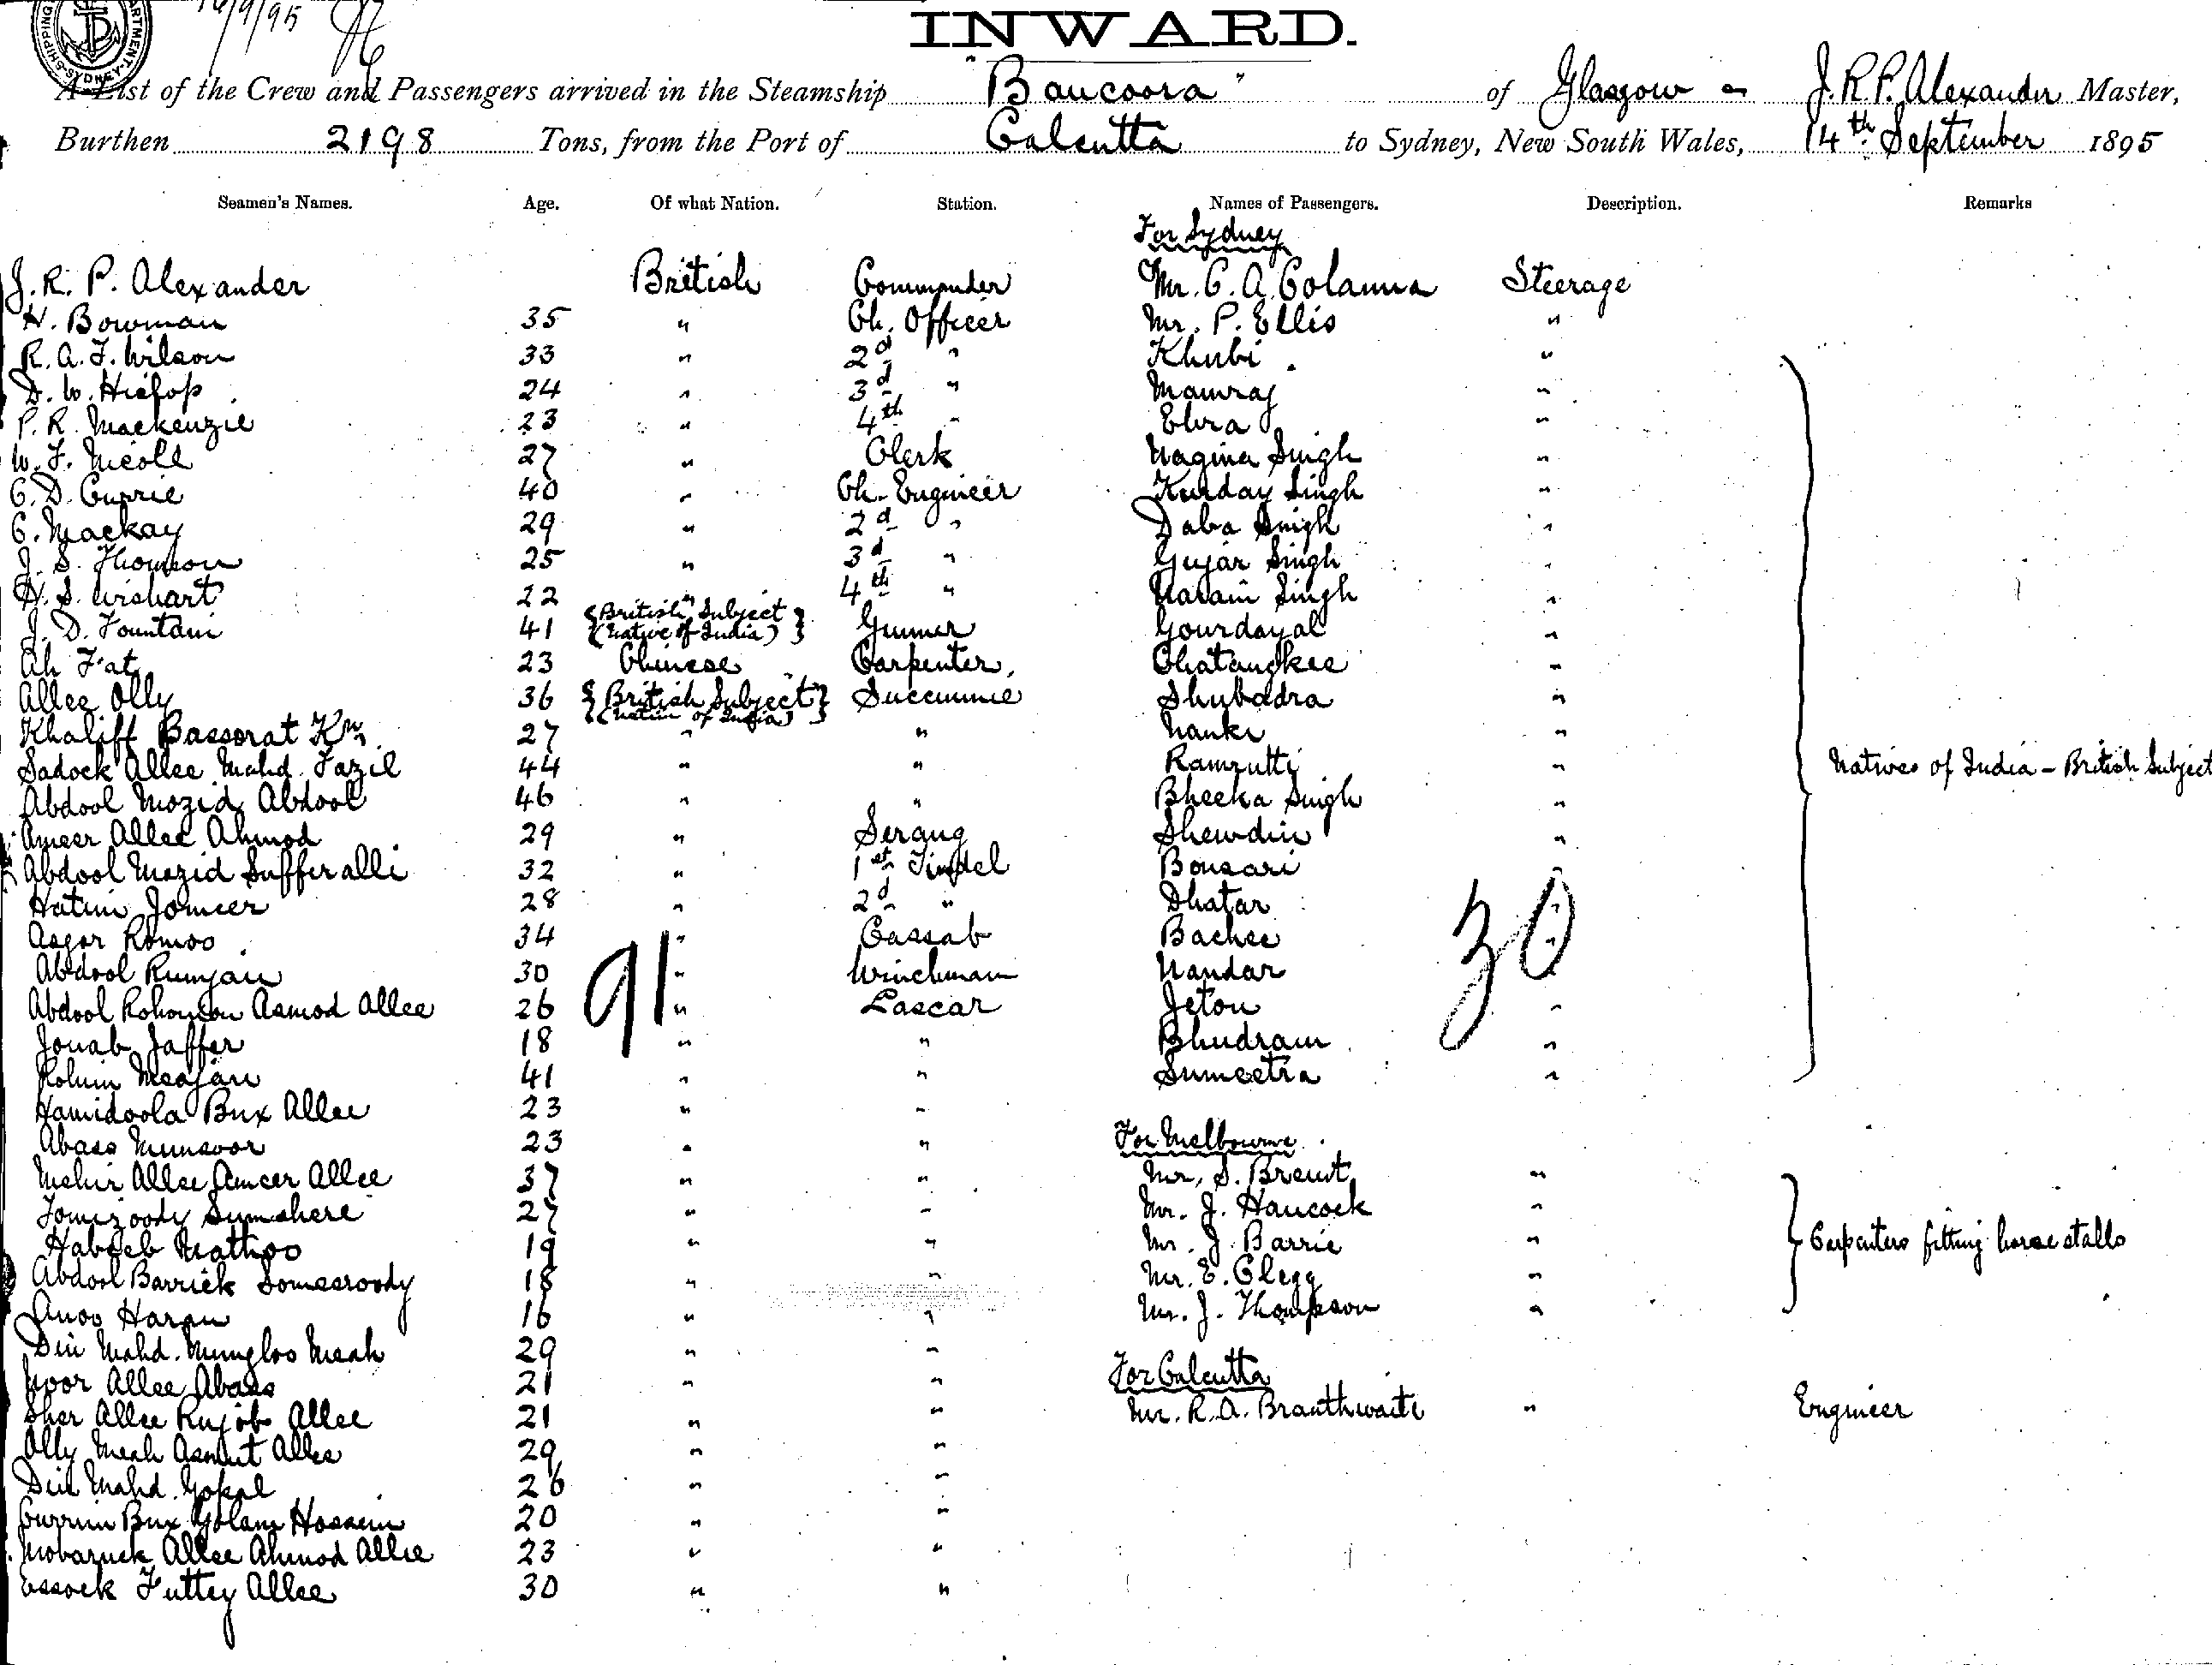 14/9/95
INWARD.
A List of the Crew and Passengers arrived in the Steamship "Bancoora" of Glasgow J. R. P. Alexander Master,
Burthen 2198 Tons, from the Port of Calcutta to Sydney, New South Wales, 14th September 1895
Seamen's Names. Age. Of what Nation. Station. Names of Passengers. Description. Remarks
For Sydney
J. R. P. Alexander British Commander Mr. C. A. Colanna Steerage
H. Bowman 35 " Ch. Officer Mr. P. Ellis "
R. A. F. Wilson 33 " 2d " Khubi "
D. W. Hislop 24 " 3d " Mamraj "
P. R. Mackenzie 23 " 4th " Elura "
W. F. Nicoll 27 " Clerk Nagina Singh "
C. D. Currie 40 " Ch. Engineer Kurday Singh "
C. Mackay 29 " 2d " Daba Singh "
J. S. Thomson 25 " 3d " Gujar Singh "
H. S. Wishart 22 " 4th " Narain Singh "
J. D. Fountain 41 {British Subject (Native of India)} Gunner Gourdayal "
Ah Fat 23 Chinese Carpenter, Chatangkee "
Allee Olly 36 {British Subject (Native of India)} Succunnie Shubadra "
Khaliff Bassorat Kn 27 " " Nanki "
Sadock Allee Mahd. Fazil 44 " " Ramrutti " Natives of India - British Subject
Abdool Mozid Abdool 46 " " Bheeka Singh "
Ameer Allee Ahmod 29 " Serang Shewdin "
Abdool Mozid Sufferalli 32 " 1st Tindel Bousari "
Hatim Jomeer 28 " 2d " Dhatar "
Asgar Romoo 34 " Cassab Bachee "
Abdool Rumjan 30 " Winchman Nandar
91 30
Abdool Rohomon Asmod Allee 26 " Lascar Jetou "
Jonab Jaffer 18 " " Bhudram "
Rohim Meajan 41 " " Sumeetra "
Hamidoola Bux Allee 23 " "
Abass Munsoor 23 " " For Melbourne
Mehir Allee Ameer Allee 37 " " Mr. S. Brewt "
Tomizoody Sumshere 27 " " Mr. J. Hancock "
Habeeb Nathoo 19 " " Mr. J. Barrie " Carpenters fitting horse stalls
Abdool Barrick Somesroody 18 " " Mr. E. Clegg "
Anoo Haran 16 " " Mr. J. Thompson "
Din Mahd. Mungloo Meah 29 " "
Noor Allee Abass 21 " " For Calcutta
Sher Allee Rujob Allee 21 " " Mr. R. A. Branthwaite " Engineer
Olly Meah Asmut Allee 29 " "
Din Mahd. Gokal 26 " "
Currim Bux Golam Hossein 20 " "
Mobaruck Allee Ahmod Allee 23 " "
Essock Futtey Allee 30 " "